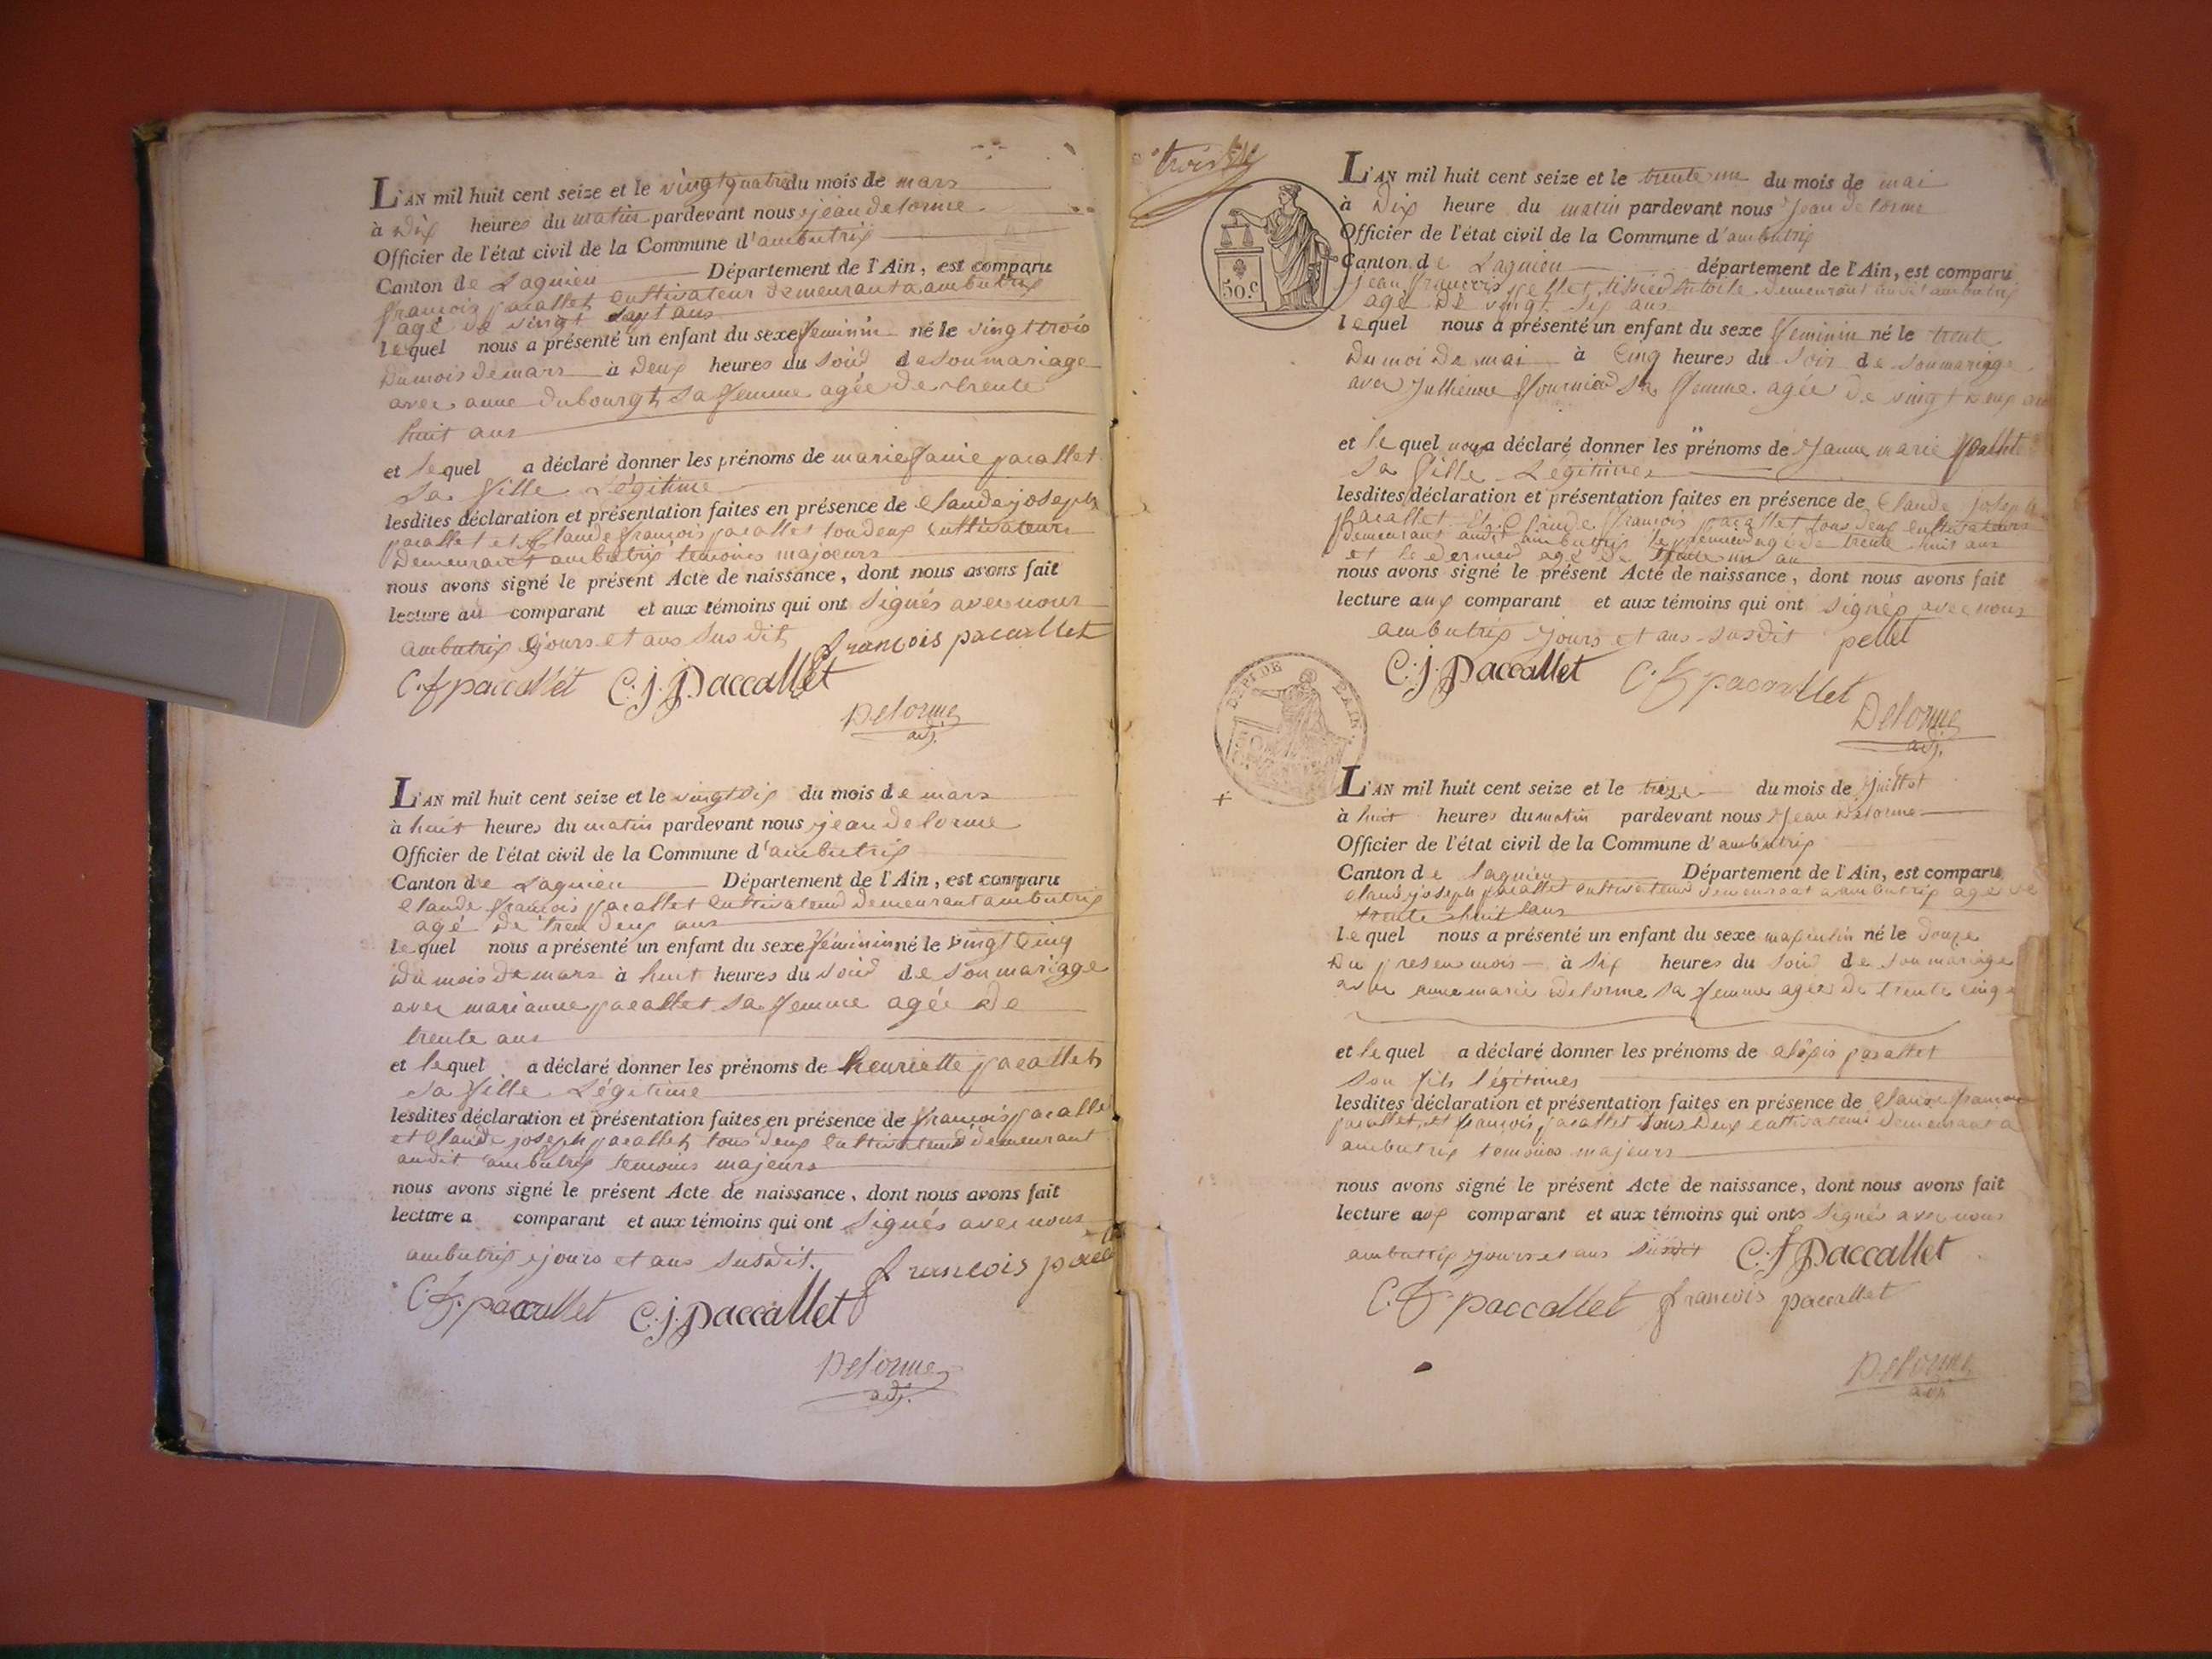 L'AN mil huit cent seize et le vingtquatre du mois de mars
à Dix heures du matin pardevant nous jean delorme
Officier de l'état civil de la Commune d'ambutrix
Canton de Lagnieu Département de l'Ain, est comparu
françois pacallet cultivateur demeurant a ambutrix
agé de vingt sept ans
lequel nous a présenté un enfant du sexe feminin né le vingt trois
Du mois de mars à Deux heures du soir de son mariage
avec anne dubourgt sa femme agée de trente
huit ans
et lequel a déclaré donner les prénoms de marie pacallet
sa fille Légitime
lesdites déclaration et présentation faites en présence de Claude joseph
pacallet et Claude françois pacallet tou deux cultivateurs
Demeurant ambutrix temoins majeurs
nous avons signé le présent Acte de naissance, dont nous avons fait
lecture au comparant et aux témoins qui ont signés avec nous
ambutrix jours et ans susdit françois paccallet
C. f paccallet C. j. Paccallet
Delorme
adj.
L'AN mil huit cent seize et le vingt six du mois de mars
à huit heures du matin pardevant nous jean delorme
Officier de l'état civil de la Commune d'ambutrix
Canton de Lagnieu Département de l'Ain, est comparu
Claude françois pacallet cultivateur demeurant ambutrix
agé De tren deux ans
lequel nous a présenté un enfant du sexe féminin né le vingt Cinq
Du mois de mars à huit heures du soir de son mariage
avec marianne pacallet sa femme agée De
trente ans
et lequel a déclaré donner les prénoms de henriette pacallet
sa fille Légitime
lesdites déclaration et présentation faites en présence de françois pacalle
et Claude joseph pacallet tous deux cultivateurs demeurant
audit ambutrix temoins majeurs
nous avons signé le présent Acte de naissance, dont nous avons fait
lecture a comparant et aux témoins qui ont signés avec nous
ambutrix jours et ans susdit. françois
C. f. paccallet C. j. paccallet
Delorme
adj.
trois
50. C
DEPT DE L'AIN.
L'AN mil huit cent seize et le trente un du mois de mai
à Dix heure du matin pardevant nous Jean delorme
Officier de l'état civil de la Commune d'ambutrix
Canton de Lagnieu département de l'Ain, est comparu
jean françois pellet demeurant audit ambutrix
agé de vingt six ans
lequel nous a présenté un enfant du sexe feminin né le trente
Du moi De mai à Cinq heures du soir de son mariage
avec Jullienne fournier sa femme agée de vingt deux
et lequel nous a déclaré donner les prénoms de Janne marie
sa fille Légitimes
lesdites déclaration et présentation faites en présence de Claude joseph
pacallet et Claude françois pacallet tous deux cultivateurs
demeurant audit ambutrix le premier agé de trente huit ans
et le dernier agé de trente un an
nous avons signé le présent Acte de naissance, dont nous avons fait
lecture aux comparant et aux témoins qui ont signés avec nous
ambutrix jours et ans susdit pellet
C. j. Paccallet C. f paccallet
Delorme
adj.
L'AN mil huit cent seize et le treze du mois de juillet
à huit heures du matin pardevant nous Jean Delorme
Officier de l'état civil de la Commune d'ambutrix
Canton de Lagnieu Département de l'Ain, est comparu
Claude joseph pacallet cultivateur demeurant a ambutrix agé de
trente huit ans
lequel nous a présenté un enfant du sexe né le douze
Du present mois à six heures du soir de son mariage
avec anne marie delorme sa femme agée de trente cinq
et lequel a déclaré donner les prénoms de alexis pacallet
son fils légitimes
lesdites déclaration et présentation faites en présence de Claude
pacallet et françois pacallet tous deux cultivateurs demeurant a
ambutrix temoins majeurs
nous avons signé le présent Acte de naissance, dont nous avons fait
lecture aux comparant et aux témoins qui onts signés avec nous
ambutrix jours et ans susdit C. j Paccallet
C. f paccallet francois paccallet
Delorme
adj.